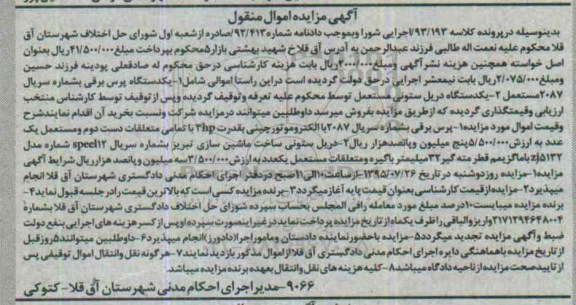 آگهی مزایده اموال منقول
بدینوسیله در پرونده کلاسه ۹۳/۱۹۳/اجرایی شورا وبموجب دادنامه شماره ۹۲/۴۱۳/صادره ازشعبه اول شورای حل اختلاف شهرستان آق
قلا محکوم علیه نعمت اله طالبی فرزند عبدالرحمن به آدرس آق قلاخ شهید بهشتی بازار ۵محکوم بپرداخت مبلغ۴۱/۵۰۰/۰۰۰ریال بعنوان
اصل خواسته همچنین هزینه نشر آگهی ومبلغ ریال بابت هزینه کارشناسی درحق محکوم له صادقعلی پودینه فرزند حسین
ومبلغ۲/۰۷۵/۰۰۰ریال بابت نیمعشر اجرایی درحق دولت گردیده است دراین راستا اموالی شامل۱-یکدستگاه پرس برقی بشماره سریال
۲۰۸۷مستعمل ۲-یکدستگاه دریل ستونی مستعمل توسط محکوم علیه تعرفه وتوقیف گردیده وپس ازتوقیف توسط کارشناس منتخب
ارزیابی وقیمتگذاری گردیده که ازطریق مزایده بفروش میرسد داوطلبین میتوانند درمزایده شرکت ونسبت بخرید آن اقدام نمایندشرح
وقیمت اموال مورد مزایده۱-پرس برقی بشماره سریال ۲۰۸۷باالکتروموتورچینی بقدرت ۳hp با تمامی متعلقات دست دوم ومستعمل یک
عدد به ارزش۵/۵۰۰/۰۰۰پنج میلیون وپانصدهزار ریال۲-دریل ستونی ساخت ماشین سازی تبریز بشماره سریال speel12 شماره مدل
zj5132 باماگزیمم قطر مته گیر۳۲میلیمتر باگیره ومتعلقات مستعمل یکعدد به ارزش۳/۵۰۰/۰۰۰سه میلیون وپانصد هزارریال شرایط آگهی
مزایده۱-مزایده روزدوشنبه در تاریخ ۱۳۹۵/۰۷/۲۶ ازساعت۱۰الی۱۱صبح دردفتر اجرای احکام مدنی دادگستری شهرستان آق قلا انجام
میپذیرد۲-مزایده ازقیمت کارشناسی بعنوان قیمت پایه آغازمیگردد۳-برنده مزایده کسی است که بالاترین قیمت رادرجلسه قبول نماید۴-
برنده مزایده میبایست۱۰درصد مبلغ مورد معامله رافی المجلس بحساب سپرده شورای حل اختلاف دادگستری شهرستان آق قلا بشماره
۲۱۷۱۲۹۴۶۴۸۰۰۴واریزوالباقی راظرف یکماه ازتاریخ مزایده پرداخت نماید درغیراینصورت سپرده اوپس ازکسرهزینه های اجرایی بنفع دولت
ضبط وآگهی مزایده تجدید میگردد۵-مزایده باحضورنماینده دادستان وماموراجرا(دادورز)انجام میپذیرد۶-داوطلبین میتوانند۵روزقبل
ازتاریخ مزایده باهماهنگی دایره اجرای احکام مدنی دادگستری آق قلاازاموال مذکور بازدید نمایند۷-هرگونه نقل وانتقال اموال توقیفی پس
از تاییدصحت مزایده ازناحیه دادگاه میباشد۸-کلیه هزینه های نقل وانتقال بعهده برنده مزایده میباشد
۹۰۶۶-مدیراجرای احکام مدنی شهرستان آق قلا-کتوکی